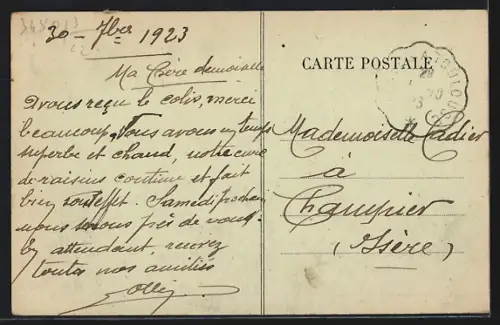 30 - 7bre 1923
Ma Chère demoiselle
avons reçu le colis, merci
beaucoup. Nous avons un temps
superbe et chaud, notre cure
de raisins continue et fait
bien son effet. Samedi prochain
nous serons près de vous.
En attendant, recevez
toutes nos amitiés
CARTE POSTALE
Mademoiselle Cadier
à
Champier
(Isère)